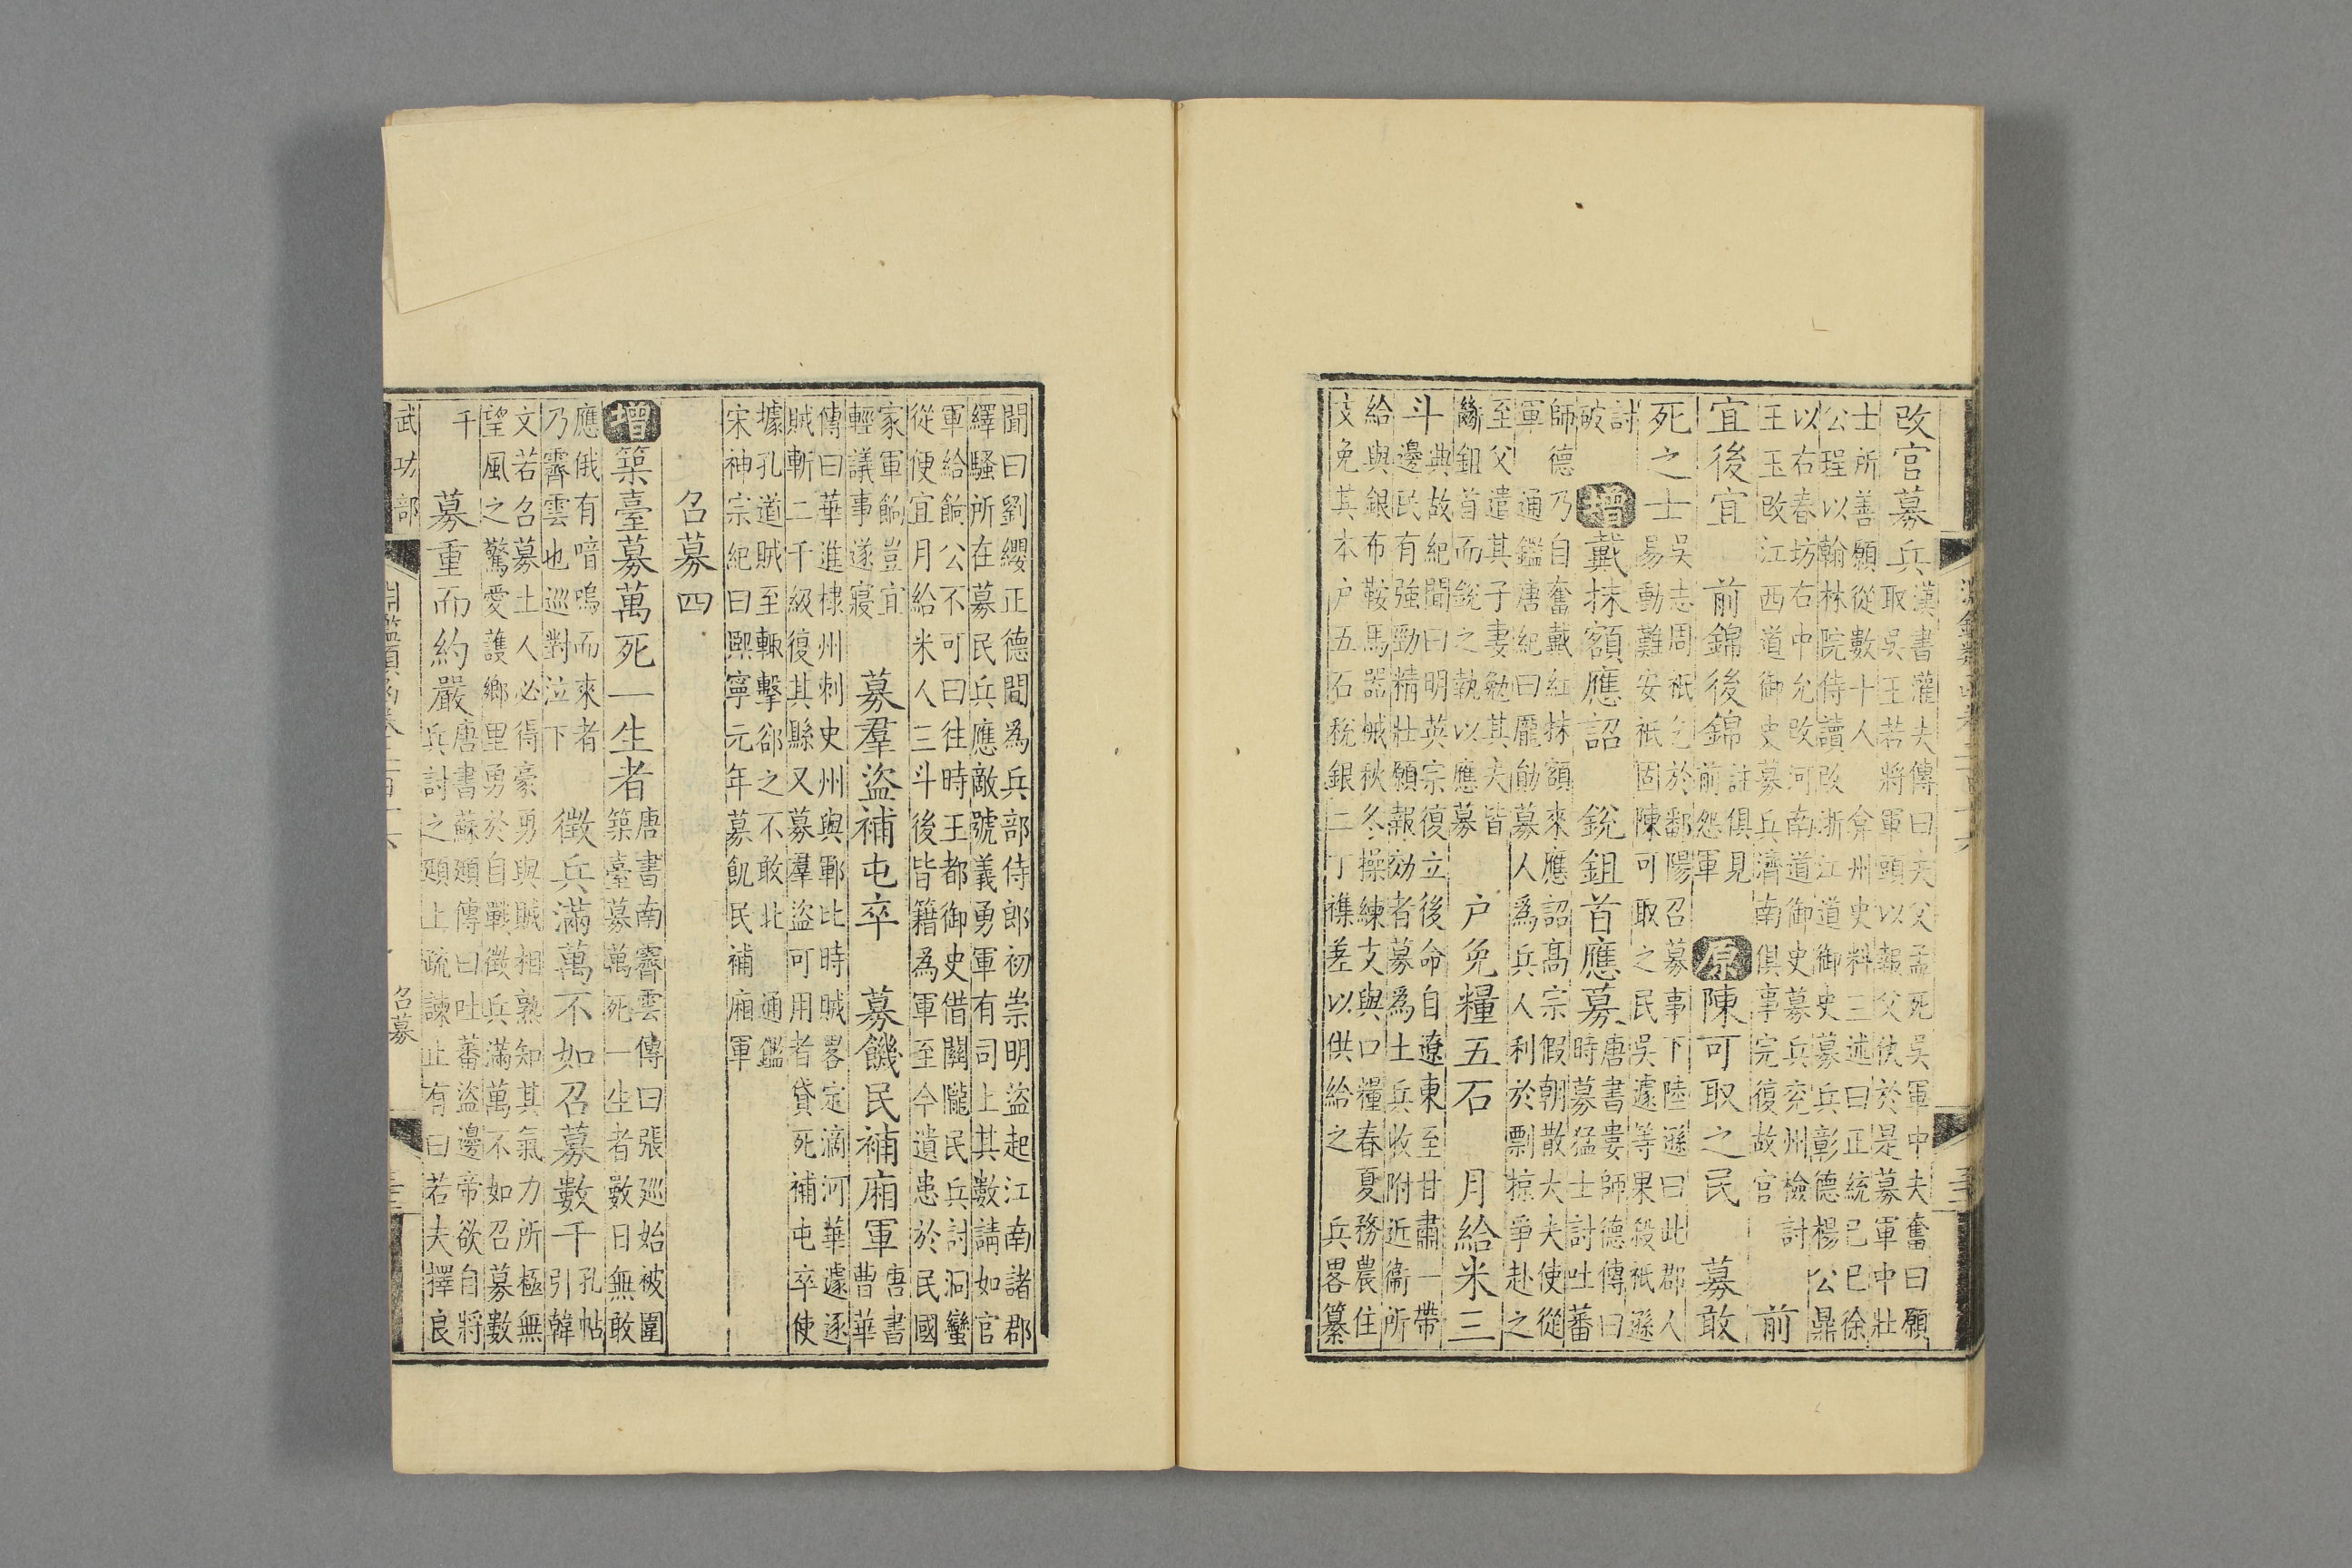 改官募兵
漢書灌夫傳曰夫父孟死吳軍中夫奮曰願
取吳王若將軍頭以報父仇於是募軍中壯
士所善願從數十人 弇州史料三述曰正統己巳徐
公珵以翰林院侍讀改浙江道御史募兵彰德楊公鼎
以右春坊右中允改河南道御史募兵兗州檢討
王玉改江西道御史募兵濟南俱事完復故官
前
宜後宜 前錦後錦
註俱見
前怨軍
原陳可取之民 募敢
死之士
吳志周祇乞於鄱陽召募事下陸遜曰此郡人
易動難安祇固陳可取之民吳遽等果殺祇遜
討
破
增戴抹額應詔 銳鉏首應募
唐書婁師德傳曰
時募猛士討吐蕃
師德乃自奮戴紅抹額來應詔高宗假朝散大夫使從
軍 通鑑唐紀曰龐勛募人為兵人利於剽掠爭赴之
至父遣其子妻勉其夫皆
斷鉏首而銳之執以應募
戶免糧五石 月給米三
斗
典故紀聞曰明英宗復立後命自遼東至甘肅一帶
邊民有強勁精壯願報効者募為土兵收附近衛所
給與銀布鞍馬器械秋冬操練支與口糧春夏務農住
支免其本戶五石稅銀二丁襍差以供給之 兵畧纂
聞曰劉纓正德間為兵部侍郎初崇明盜起江南諸郡
繹騷所在募民兵應敵號義勇軍有司上其數請如官
軍給餉公不可曰往時王都御史借關隴民兵討洞蠻
從便宜月給米人三斗後皆籍為軍至今遺患於民國
家軍餉豈宜
輕議事遂寢
募羣盜補屯卒 募饑民補廂軍
唐書
曹華
傳曰華進棣州刺史州與鄆比時賊畧定滴河華遽逐
賊斬二千級復其縣又募羣盜可用者貸死補屯卒使
據孔道賊至輙擊郤之不敢北 通鑑
宋神宗紀曰熙寧元年募飢民補廂軍
召募四
增築臺募萬死一生者
唐書南霽雲傳曰張廵始被圍
築臺募萬死一生者數日無敢
應俄有喑嗚而來者
乃霽雲也巡對泣下
徵兵滿萬不如召募數千
孔帖
引韓
文若召募土人必得豪勇與賊相熟知其氣力所極無
望風之驚愛護鄉里勇於自戰徵兵滿萬不如召募數
千
募重而約嚴
唐書蘇頲傳曰吐蕃盜邊帝欲自將
兵討之頲上疏諫止有曰若夫擇良
武功部
召募